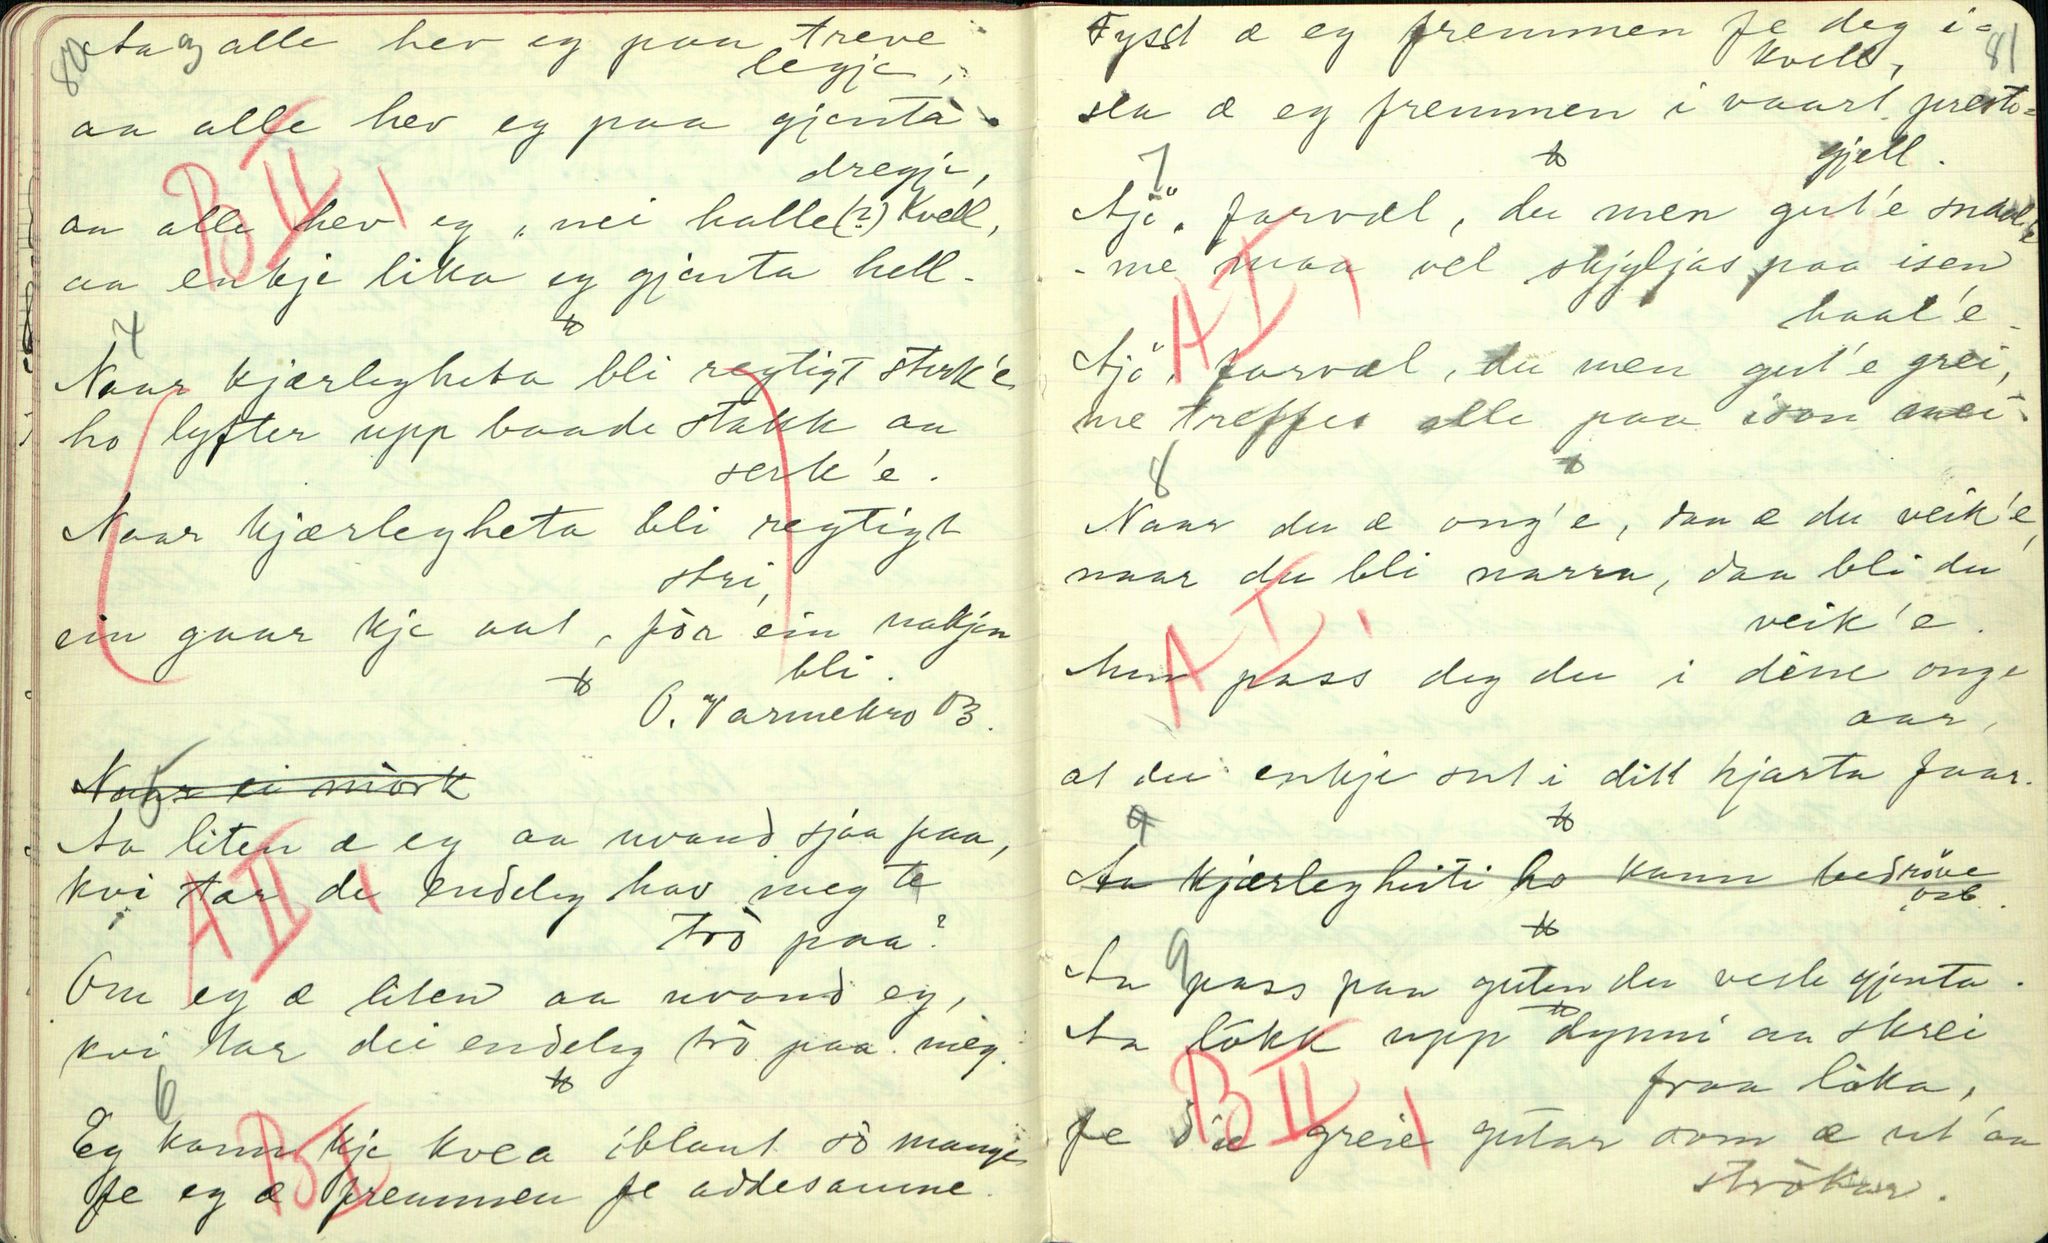 80
Aa alle hev eg paa treve
legje,
aa alle hev eg paa gjenta
dregje,
aa alle hev eg, nei halle (?) kvell,
aa enkje lika eg gjenta hell.
4
Naar kjærlegheta bli regtigt sterk'e
ho lyfter upp baade stakk aa
serk'e.
Naar kjærlegheta bli regtigt
stri,
ein gaar kje aat, för ein nakjen
bli.
O. Varmekro B3.
Naar ei mörk
5
Aa liten æ eg aa uvand sjaa paa,
kvi tar de endeleg hav meg te
trö paa?
Om eg æ liten aa uvand eg,
kvi tar dei endeleg trö paa meg.
6
Eg kann kje kvea iblant so mange
fe eg æ fremmen fe addesamme.
B II, 1
A II, 1
B I
81
Fysst æ eg fremmen fe deg i
kvell,
sea æ eg fremmen i vaart presto-
gjell.
7
Ajö, farvæl, du men gut'e snaal'e
me maa vel skjyljas paa isen
haal'e.
Ajö, farvæl, du men gut'e grei,
me treffes alle paa ison mei.
8
Naar du æ ong'e, daa æ du veik'e,
naar du bli narra, daa bli du
veik'e.
Men pass deg du i déne onge
aar,
at du enkje sut i ditt hjarta faar.
9
Aa kjærlegheiti ho kann bedröve
osb.
9
Aa pass paa guten du vesle gjenta.
Aa lökk upp dynni aa skrei
fraa löka,
fe dei greie gutar som æ ut'aa
strökar.
A I, 1
A I, 1
B II, 1